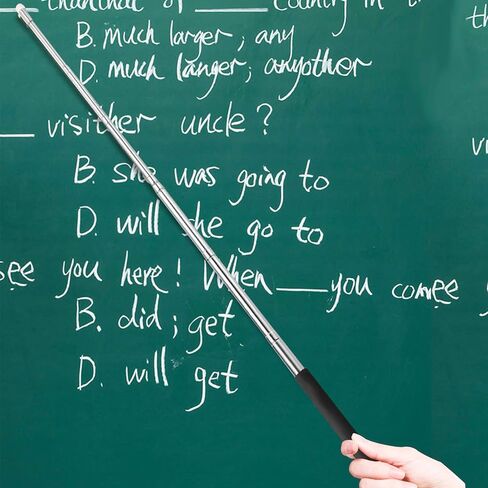 of ____ country in
B. much larger; any
D. much langer; anyother
____ visither uncle?
B. she was going to
D. will she go to
see you here! When ____ you comee
B. did; get
D. will get